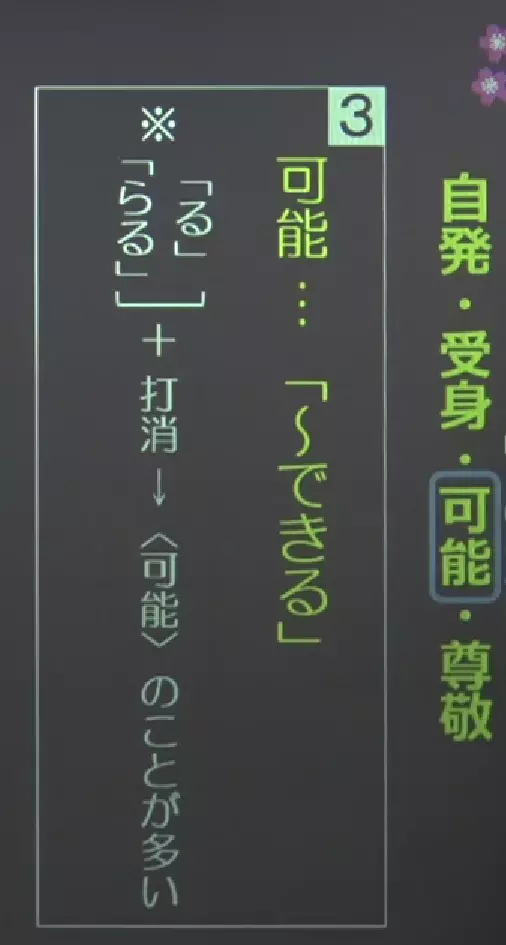 自発・受身・可能・尊敬
3
可能…「〜できる」
※「る」
「らる」]＋打消→〈可能〉のことが多い